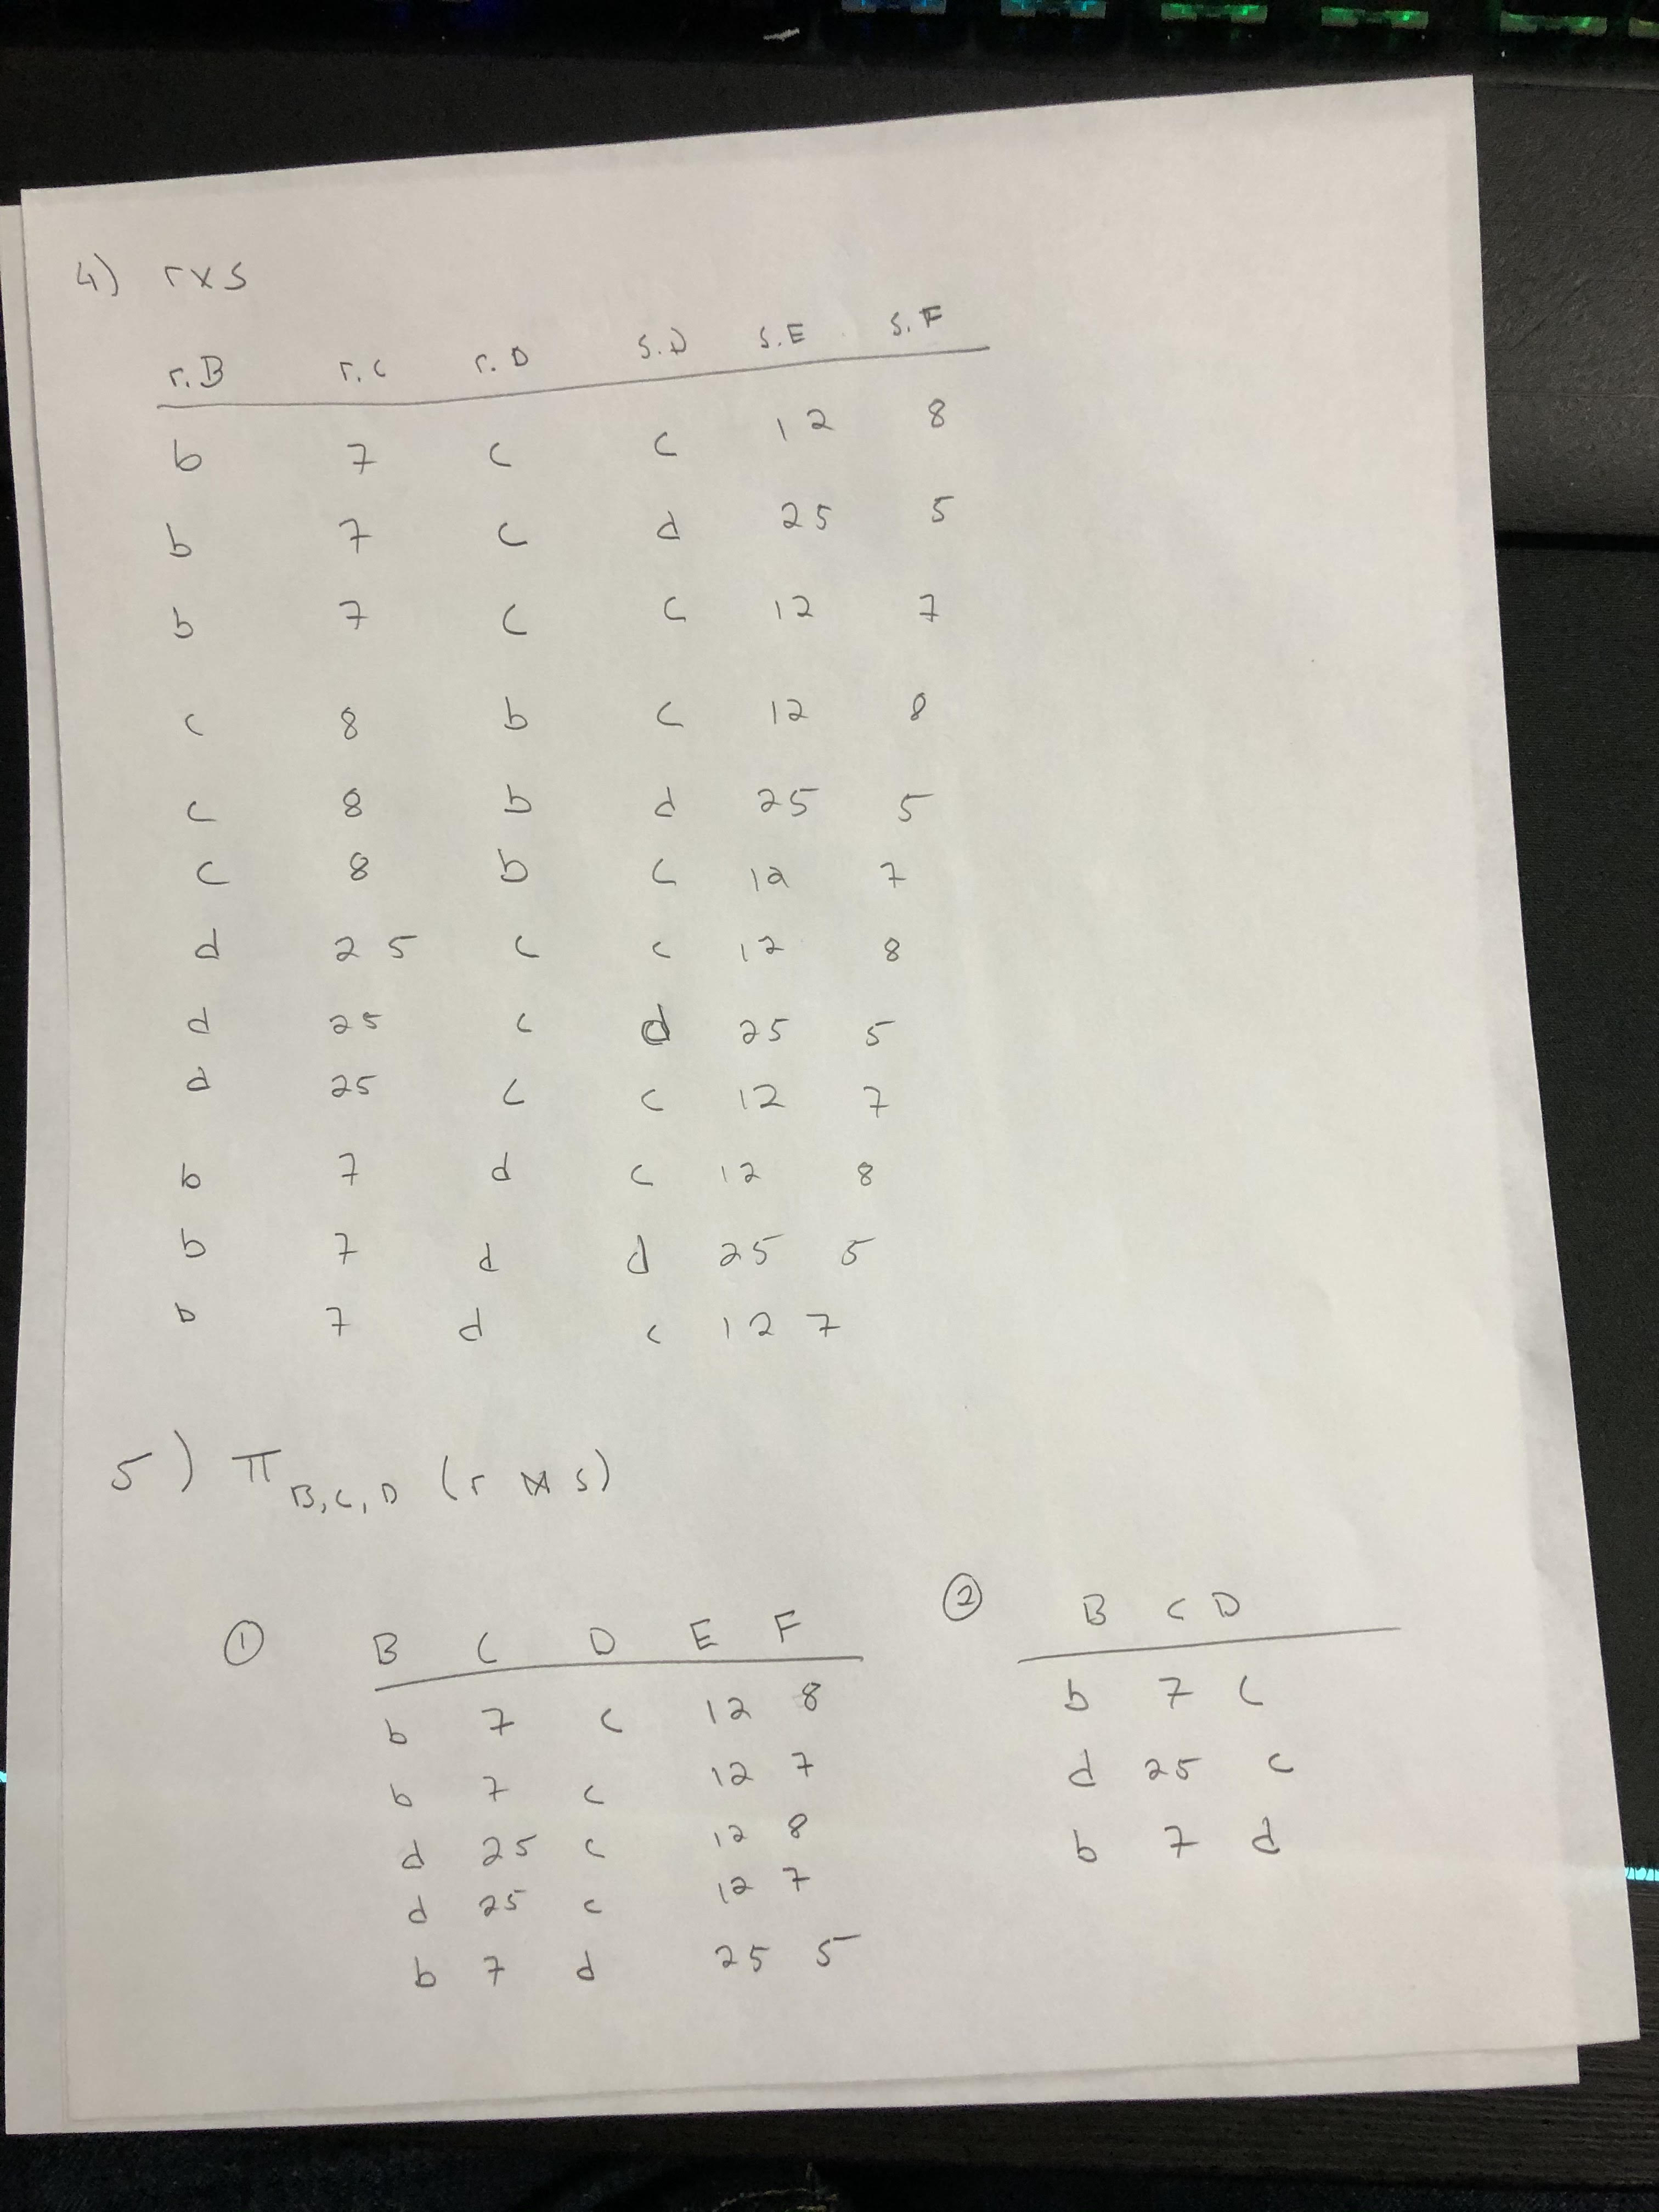 4) r x s
r.B r.C r.D s.D s.E s.F
b 7 c c 12 8
b 7 c d 25 5
b 7 c c 12 7
c 8 b c 12 8
c 8 b d 25 5
c 8 b c 12 7
d 25 c c 12 8
d 25 c d 25 5
d 25 c c 12 7
b 7 d c 12 8
b 7 d d 25 5
b 7 d c 12 7
5) π B,C,D (r ⋈ s)
① B C D E F
b 7 c 12 8
b 7 c 12 7
d 25 c 12 8
d 25 c 12 7
b 7 d 25 5
② B C D
b 7 c
d 25 c
b 7 d